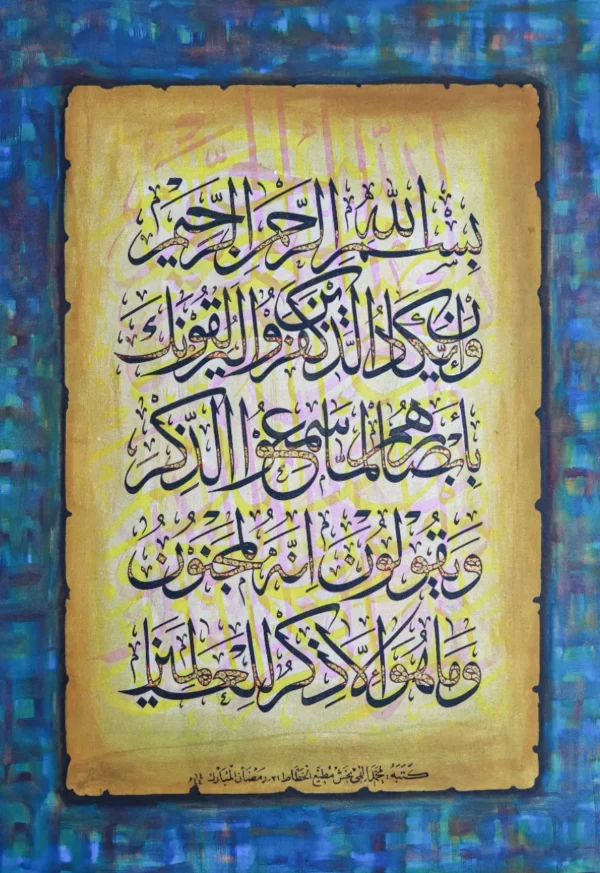 بِسْمِ اللهِ الرَّحْمٰنِ الرَّحِيْمِ
وَاِنْ يَّكَادُ الَّذِيْنَ كَفَرُوْا لَيُزْلِقُوْنَكَ
بِاَبْصَارِهِمْ لَمَّا سَمِعُوا الذِّكْرَ
وَيَقُوْلُوْنَ اِنَّهٗ لَمَجْنُوْنٌ
وَمَا هُوَ اِلَّا ذِكْرٌ لِّلْعٰلَمِيْنَ
كَتَبَهُ: مُحَمَّد اِلٰهی بَخْش مُطِیْع الخَطَّاط ٢١، رَمَضَانَ الْمُبَارَك